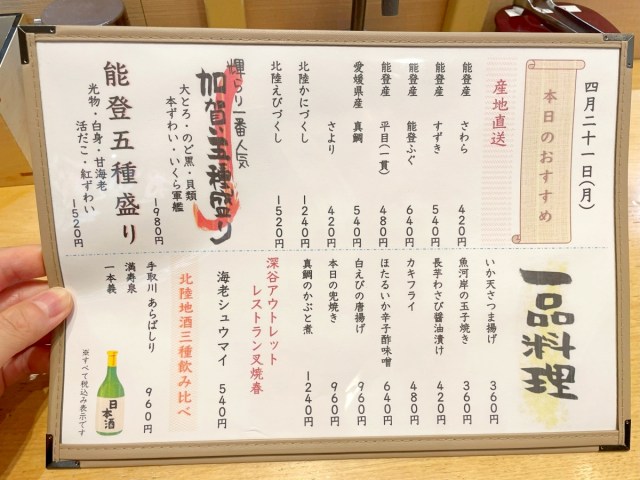 四月二十一日(月)
本日のおすすめ
産地直送
能登産 さわら 420円
能登産 すずき 540円
能登産 能登ふぐ 640円
能登産 平目(一貫) 480円
愛媛県産 真鯛 540円
さより 420円
北陸かにづくし 1240円
北陸えびづくし 1520円
輝らり一番人気
加賀五種盛り
大とろ・のど黒・貝類
本ずわい・いくら軍艦
1980円
能登五種盛り
光物・白身・甘海老
活だこ・紅ずわい
1520円
一品料理
いか天さつま揚げ 360円
魚河岸の玉子焼き 360円
長芋わさび醤油漬け 420円
カキフライ 480円
ほたるいか辛子酢味噌 640円
白えびの唐揚げ 960円
本日の兜焼き 960円
真鯛のかぶと煮 1240円
深谷アウトレット
レストラン叉焼春
海老シュウマイ 540円
北陸地酒三種飲み比べ
手取川 あらばしり 960円
満寿泉
一本義
日本酒
※すべて税込み表示です